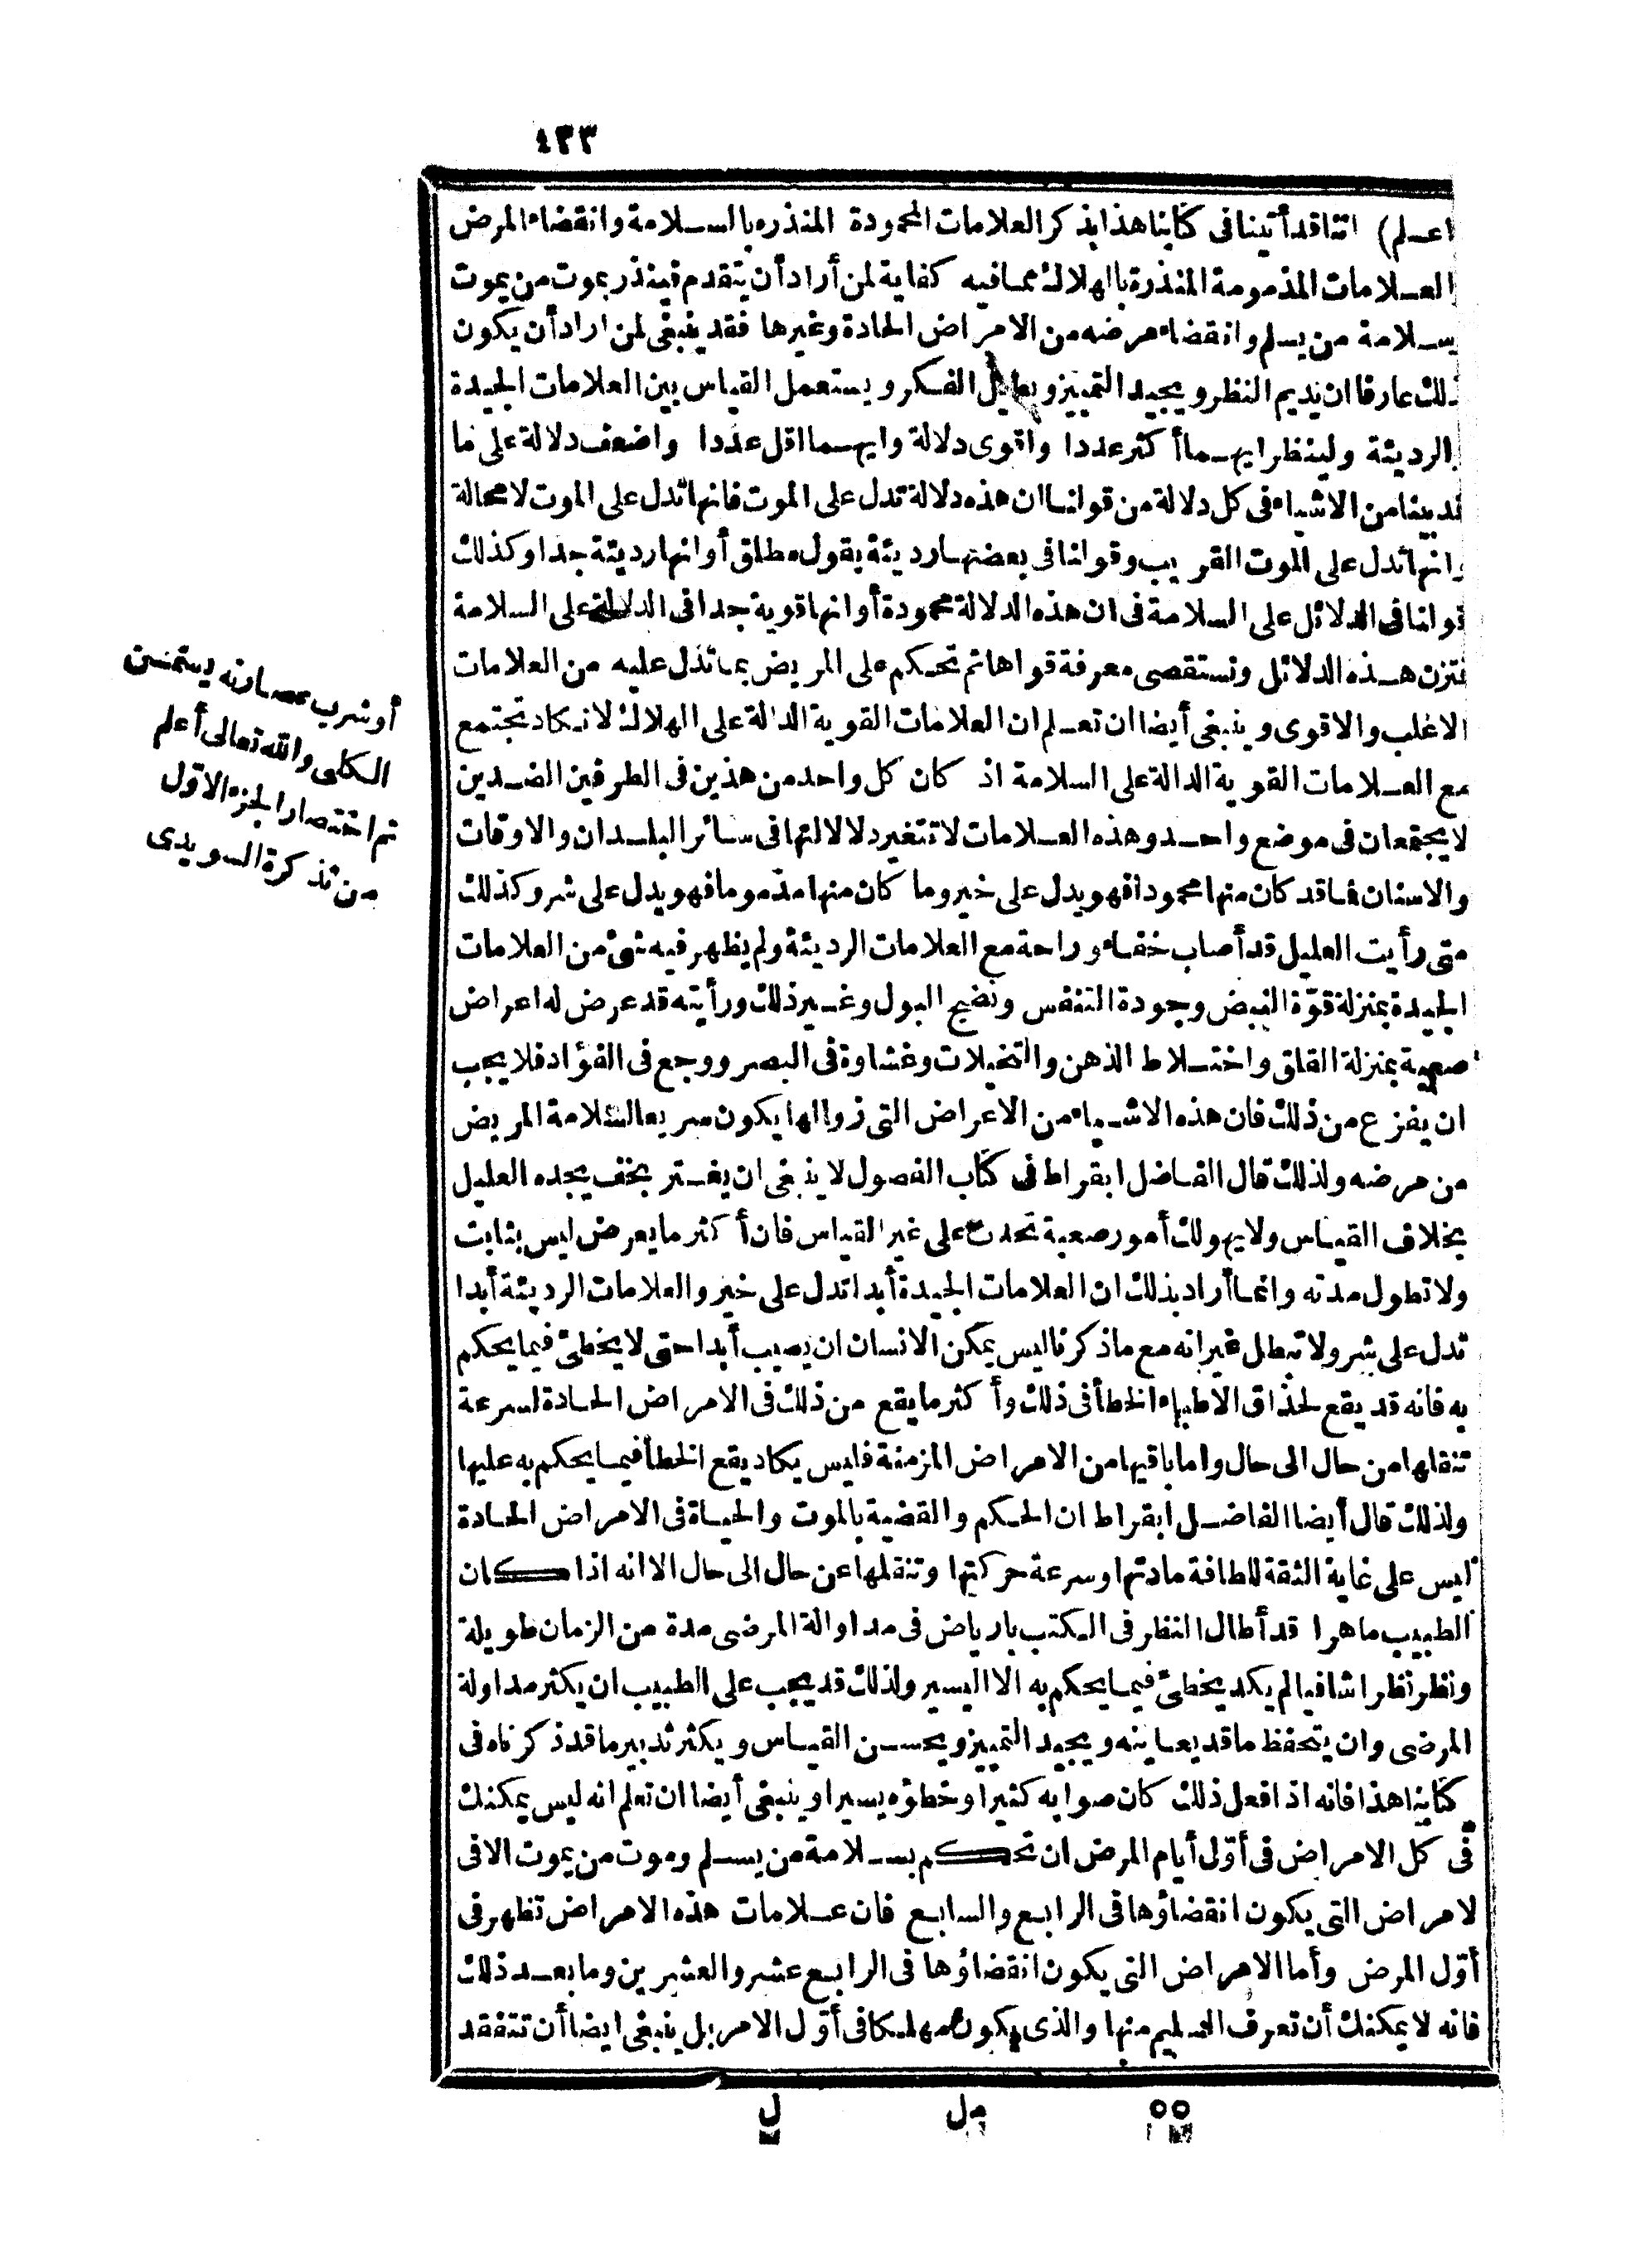 ٤٣٣
اعلم) اننا قد أتينا فى كتابنا هذا بذكر العلامات المحمودة المنذرة بالسلامة وانقضاء المرض
العلامات المذمومة المنذرة بالهلاك مما فيه كفاية لمن أراد أن يتقدم فينذر بموت من يموت
بسلامة من يسلم وانقضاء مرضه من الامراض الحادة وغيرها فقد ينبغى لمن اراد أن يكون
ذلك عارفا ان يديم النظر ويجيد التمييز ويطيل الفكر ويستعمل القياس بين العلامات الجيدة
الرديئة ولينظر ايهما أكثر عددا واقوى دلالة وايهما اقل عددا واضعف دلالة على ما
قد بينا من الاشياء فى كل دلالة من قولنا ان هذه دلالة تدل على الموت فانها تدل على الموت لا محالة
وانها تدل على الموت القريب وقولنا فى بعضها رديئة بقول مطلق أو انها رديئة جدا وكذلك
قولنا فى الدلائل على السلامة فى ان هذه الدلالة محمودة أو انها قوية جدا فى الدلالة على السلامة
فتزن هذه الدلائل وتستقصى معرفة قواها ثم تحكم على المريض بما تدل عليه من العلامات
الاغلب والاقوى وينبغى أيضا ان تعلم ان العلامات القوية الدالة على الهلاك لا تكاد تجتمع
مع العلامات القوية الدالة على السلامة اذ كان كل واحد من هذين فى الطرفين الضدين
لا يجتمعان فى موضع واحد وهذه العلامات لا تتغير دلالالتها فى سائر البلدان والاوقات
والاسنان فما قد كان منها محمودا فهو يدل على خير وما كان منها مذموما فهو يدل على شر وكذلك
متى رأيت العليل قد أصاب خفاء وراحة مع العلامات الرديئة ولم يظهر فيه شئ من العلامات
الجيدة بمنزلة قوّة النبض وجودة التنفس ونضج البول وغير ذلك ورأيته قد عرض له اعراض
صعبة بمنزلة القلق واختلاط الذهن والتخيلات وغشاوة فى البصر ووجع فى الفؤاد فلا يجب
ان يفزع من ذلك فان هذه الاشياء من الاعراض التى زوالها يكون سريعا لسلامة المريض
من مرضه ولذلك قال الفاضل ابقراط فى كتاب الفصول لا ينبغى ان يغتر بخف يجده العليل
بخلاف القياس ولا يهولك أمور صعبة تحدث على غير القياس فان أكثر ما يعرض ليس بثابت
ولا تطول مدته وانما أراد بذلك ان العلامات الجيدة أبدا تدل على خير والعلامات الرديئة أبدا
تدل على شر ولا تبطل غير انه مع ما ذكرنا ليس يمكن الانسان ان يصيب أبدا حتى لا يخطئ فيما يحكم
به فانه قد يقع لحذاق الاطباء الخطأ فى ذلك وأكثر ما يقع من ذلك فى الامراض الحادة لسرعة
تنقلها من حال الى حال واما باقيها من الامراض المزمنة فليس يكاد يقع الخطأ فيما يحكم به عليها
ولذلك قال أيضا الفاضل ابقراط ان الحكم والقضية بالموت والحياة فى الامراض الحادة
ليس على غاية الثقة للطافة مادتها وسرعة حركتها وتنقلها عن حال الى حال الا انه اذا كان
الطبيب ماهرا قد أطال النظر فى الكتب بارياض فى مداوالة المرضى مدة من الزمان طويلة
ونظر نظرا شافيا لم يكد يخطئ فيما يحكم به الا اليسير ولذلك قد يجب على الطبيب ان يكثر مداولة
المرضى وان يتحفظ ما قد يعاينه ويجيد التمييز ويحسن القياس ويكثر تدبير ما قد ذكرناه فى
كتابنا هذا فانه اذا فعل ذلك كان صوابه كثيرا وخطؤه يسيرا وينبغى أيضا ان تعلم انه ليس يمكنك
فى كل الامراض فى أوّل أيام المرض ان تحكم بسلامة من يسلم وموت من يموت الا فى
لامراض التى يكون انقضاؤها فى الرابع والسابع فان علامات هذه الامراض تظهر فى
أوّل المرض وأما الامراض التى يكون انقضاؤها فى الرابع عشر والعشرين وما بعد ذلك
فانه لا يمكنك أن تعرف السليم منها والذى يكون مهلكا فى أوّل الامر بل ينبغى ايضا أن تتفقد
أو شرب عصارته يستمسن
الكلى والله تعالى أعلم
تم اختصار الجزء الاوّل
من تذكرة السويدى
٥٥ مل ل